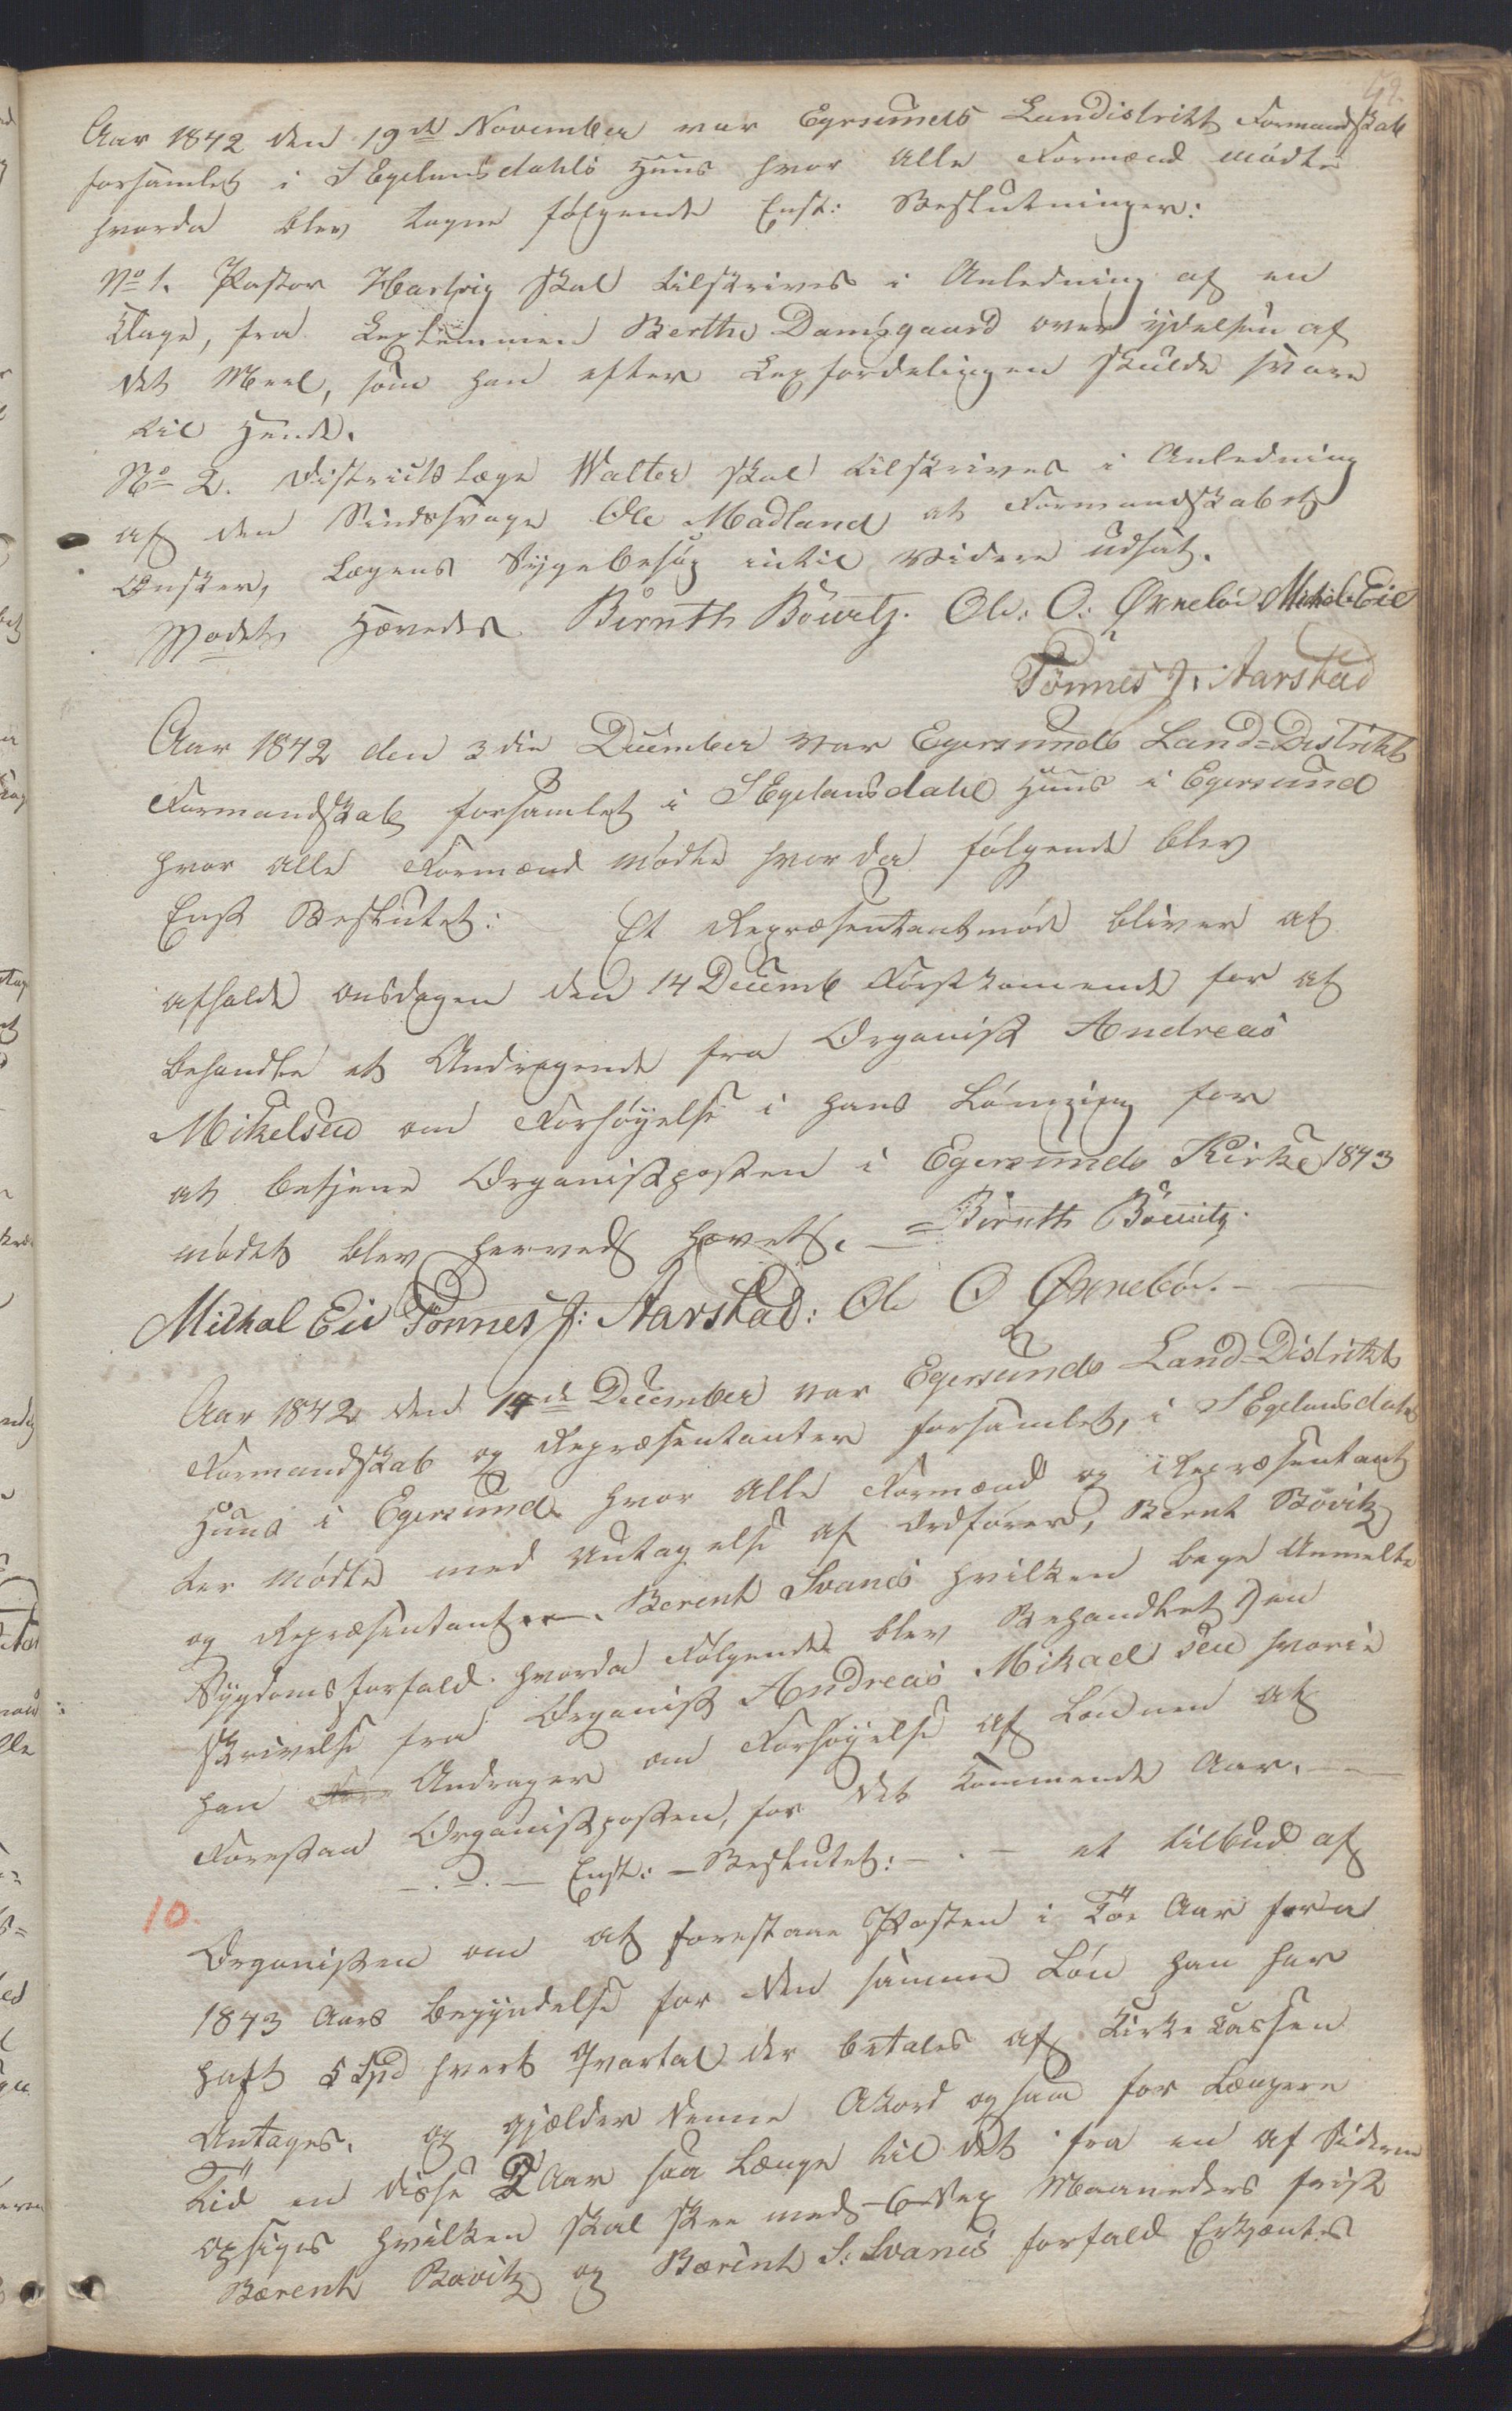 Aar 1842 den 19de November var Egersunds Landistrikt Formandskab
forsamlet i S Egelansdahls Huus hvor alle Formænd mødte
hvorda blev tagne følgende Enst: Beslutninger:
No 1. Pastor Hartvig skal tilskrives i Anledning af en
Klage, fra Leglemmen Berthe Damsgaard over ydelsen af
det Meel, som han efter Legfordelingen skulde svare
til Hende.
No 2. Districtslæge Walter skal tilskrives i Anledning
af den Sindssvage Ole Madland at Formandskabet
Ønsker, Lægens Sygebesøg intil Videre udsat.
Modet Hævedes Bernth Böwitz. Ole: O: Øxnebøe Mikal Eie
Tönnes J: Aarstad
Aar 1842 den 3die December var Egersunds Land-Distrikts
Formandskab forsamlet i S Egelansdahl Huus i Egersund
hvor alle Formænd mødte hvor da følgende blev
Enst Beslutet: Et Repræsentantmøde bliver at
afholde onsdagen den 14 Decemb Førstkomende for at
behandle et Andragende fra Organist Andreas
Mikelsen om Forhøyelse i hans Lønning for
at betjene Organistposten i Egersunds Kirke 1843
mødet blev herved hævet. Bernth Böwitz.
Mikal Eie Tönnes J: Aarstad: Ole O Øxnebøe.
Aar 1842 den 14de December var Egersunds Land-Distrikts
Formandskab og Repræsentanter forsamlet, i S Egelansdahls
Huus i Egersund hvor Alle Formænd og Repræsentant
ter mødte med Untagelse af Ordfører, Bernt Bövitz
og Repræsentant Berent Svanes hvilken bege Anmelte
Sygdomsforfald. hvorda Følgende blev Behandlet) en
Skrivelse fra Organist Andreas Mikaelsen hvori
han Andrager om Forhøyelse af Lønnen at
Forestaa Organistposten, for det kommende Aar.
Enst: Beslutet: et tilbud af
10.
Organisten om at forestaae Posten i Toe Aar fra
1843 Aars begyndelse for den samme Løn han har
haft 5 Spd hvert Qvartal der betales af Kirkekassen
Antages. og gjælder denne Akord ogsaa for Længere
Tid en disse 2 Aar saa Længe til det fra en af Siderne
opsiges hvilken skal skee med 6 Sex Maaneders frist
Bærent Bovitz og Bærent S: Svanes forfald Erkjæntes